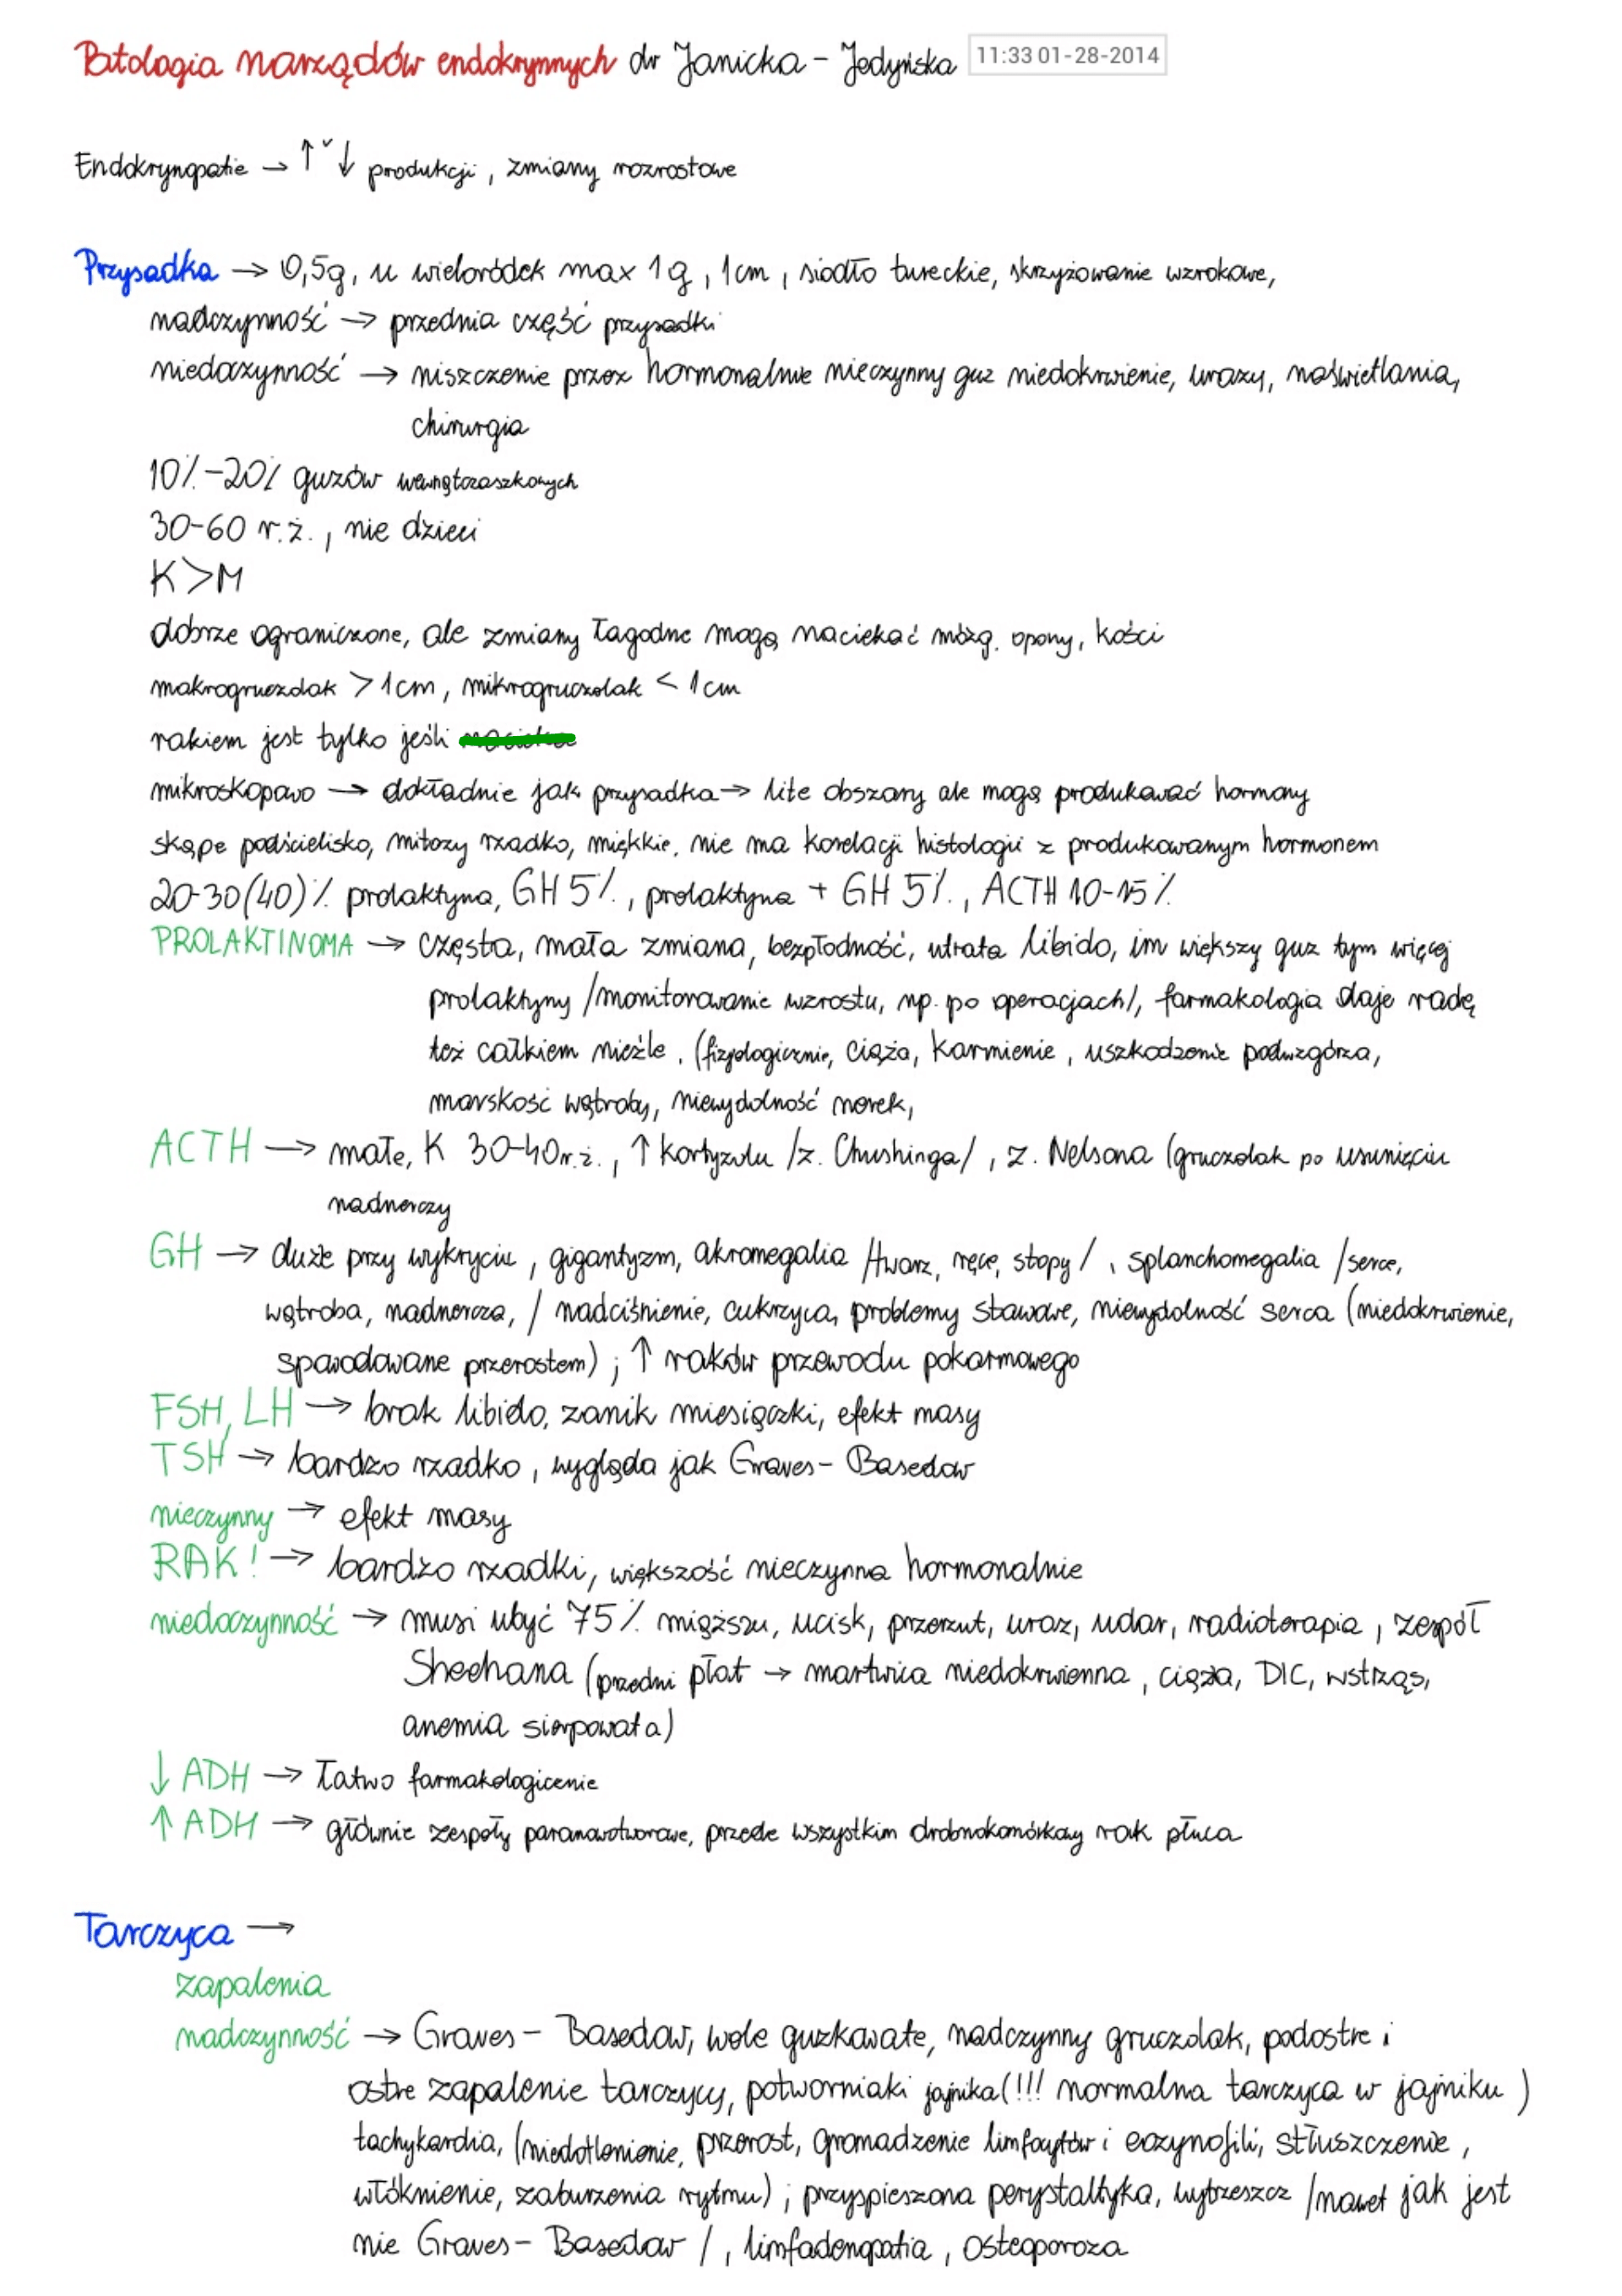 Patologia narządów endokrynnych dr Janicka - Jedyńska 11:33 01-28-2014
Endokrynopatie → ↑ ˅ ↓ produkcji, zmiany rozrostowe
Przysadka → 0,5g, u wieloródek max 1g, 1cm, siodło tureckie, skrzyżowanie wzrokowe,
nadczynność → przednia część przysadki
niedoczynność → niszczenie przez hormonalnie nieczynny guz niedokrwienie, urazy, naświetlania,
chirurgia
10%-20% guzów wewnątrzczaszkowych
30-60 r.ż., nie dzieci
K>M
dobrze ograniczone, ale zmiany łagodne mogą naciekać mózg, opony, kości
makrogruczolak > 1cm, mikrogruczolak < 1cm
rakiem jest tylko jeśli
mikroskopowo → dokładnie jak przysadka → lite obszary ale mogą produkować hormony
skąpe podścielisko, mitozy rzadko, miękkie, nie ma korelacji histologii z produkowanym hormonem
20-30(40)% prolaktyna, GH 5%, prolaktyna + GH 5%, ACTH 10-15%
PROLAKTINOMA → częsta, mała zmiana, bezpłodność, utrata libido, im większy guz tym więcej
prolaktyny /monitorowanie wzrostu, np. po operacjach/, farmakologia daje radę
też całkiem nieźle. (fizjologicznie, ciąża, karmienie, uszkodzenie podwzgórza,
marskość wątroby, niewydolność nerek,
ACTH → małe, K 30-40r.ż., ↑ kortyzolu /z. Chushinga/, z. Nelsona (gruczolak po usunięciu
nadnerczy
GH → duże przy wykryciu, gigantyzm, akromegalia /twarz, ręce, stopy/, splanchomegalia /serce,
wątroba, nadnercza, / nadciśnienie, cukrzyca, problemy stawowe, niewydolność serca (niedokrwienie,
spowodowane przerostem); ↑ raków przewodu pokarmowego
FSH, LH → brak libido, zanik miesiączki, efekt masy
TSH → bardzo rzadko, wygląda jak Graves - Basedow
nieczynny → efekt masy
RAK! → bardzo rzadki, większość nieczynna hormonalnie
niedoczynność → musi ubyć 75% miąższu, ucisk, przerzut, uraz, udar, radioterapia, zespół
Sheehana (przedni płat → martwica niedokrwienna, ciąża, DIC, wstrząs,
anemia sierpowata)
↓ ADH → łatwo farmakologicznie
↑ ADH → głównie zespoły paranowotworowe, przede wszystkim drobnokomórkowy rak płuca
Tarczyca →
zapalenia
nadczynność → Graves - Basedow, wole guzkowate, nadczynny gruczolak, podostre i
ostre zapalenie tarczycy, potworniaki jajnika (!!! normalna tarczyca w jajniku)
tachykardia, (niedotlenienie, przerost, gromadzenie limfocytów i eozynofili, stłuszczenie,
włóknienie, zaburzenia rytmu); przyspieszona perystaltyka, wytrzeszcz /nawet jak jest
nie Graves - Basedow /, limfadenopatia, osteoporoza